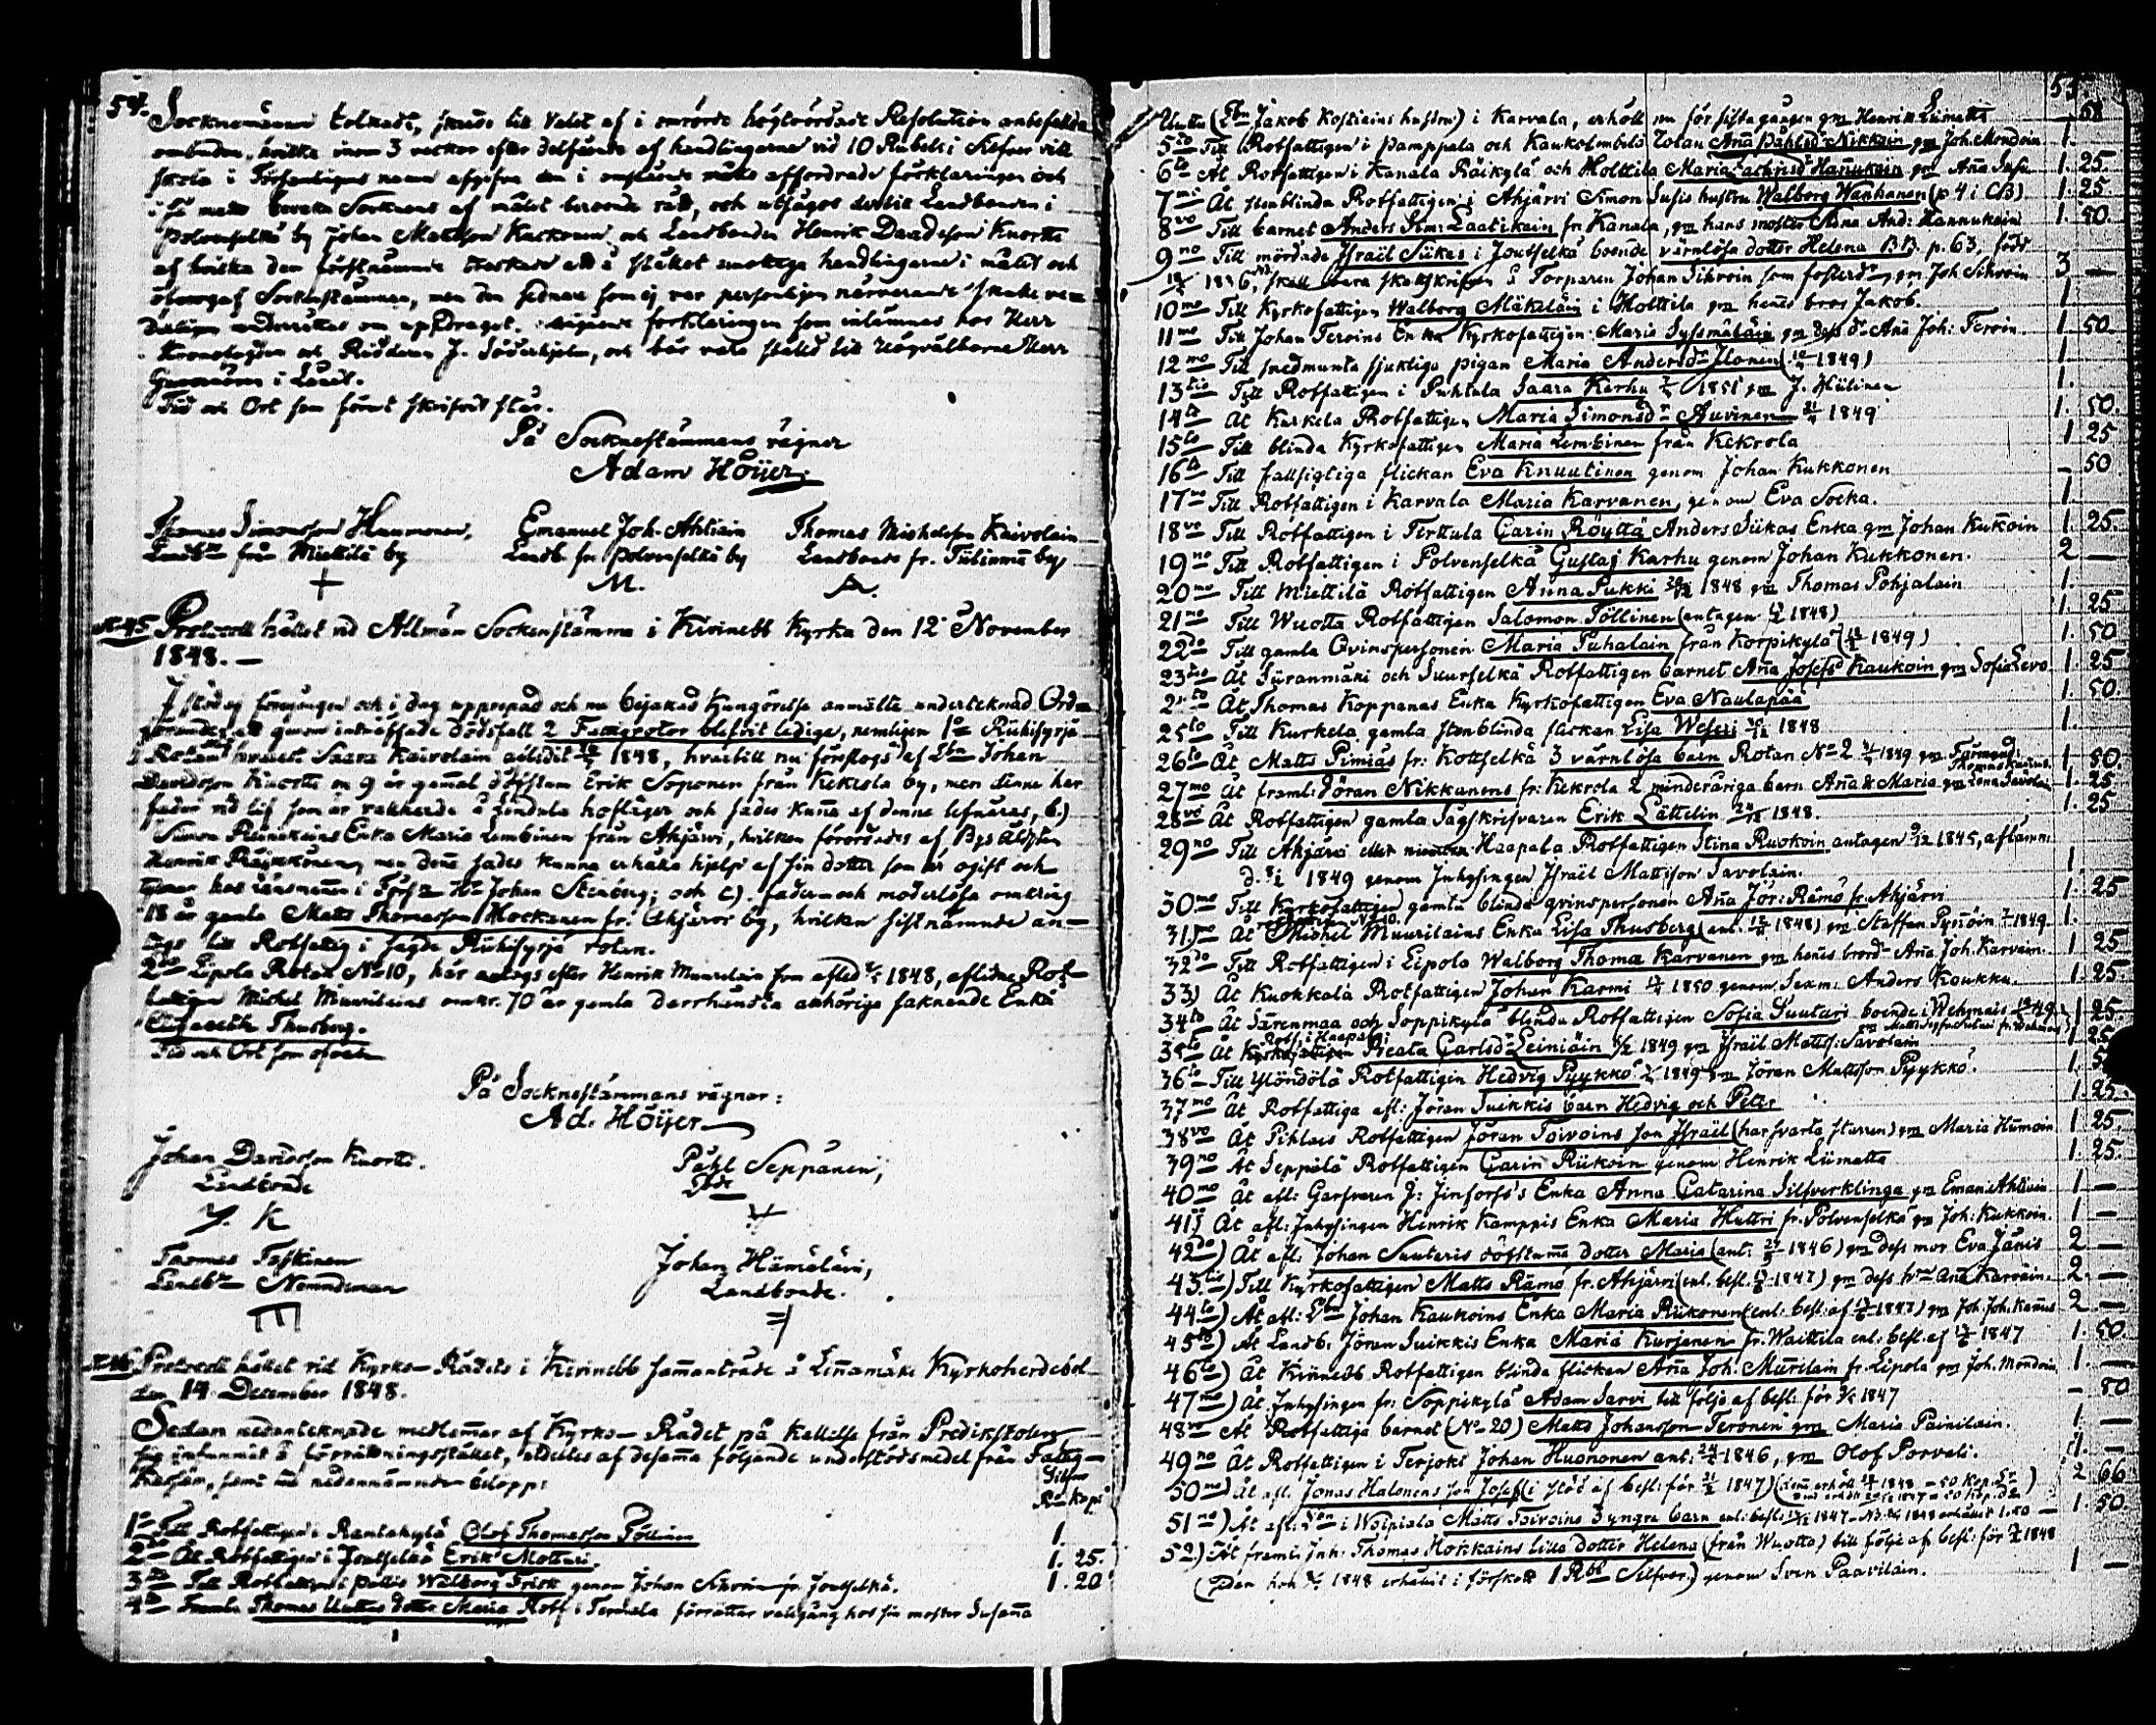 54.
Socknemännen tolkadt, skreds till valet af i omrörde högtvördade Resolution anbefallda
ombuden, hvilka inom 3 veckor efter delfående af handlingarne vid 10 Rubels i Silfver vill
skola i Församlingens namn afgifva den i omstände måtto affordrade förklaringen och
i så matto bevaka Socknens af målet beroende rätt, och utsågos dertill Landbonden i
Polvenselkä by Johan Mattsson Kuckonen och Landbonden Henrik Davidsson Knortti
af hvilka den förstnämnde å stället emottog handlingarne i målet och
öfvergaf Sockenstämman, men den sednare som ej var personligen närvarande skulle ve-
derligen underrättas om uppdraget, förklaringen som inlämnas hos Herr
Kronofogden och Riddaren J. Söderhjelm, och bör vara ställd till Högvälborne Herr
Guvernören i Länet.
Tid och Ort som förut skrifvit står.
På Socknestämmans vägnar
Adam Höijer.
Thomas Simonsson Hannonen, Emanuel Joh. Ahtiain Thomas Michelsson Kaivolain
Landbde från Miettilä by Landb. fr. Polvenselkä by Landbonde fr. Tiilimmä by
+ M.
N:o 45 Protocoll hållet vid Allmän Sockenstämma i Kivinebb Kyrka den 12 November
1848. —
I stöd af föregången och i dag upprepad och nu bejakad Kungörelse anmälte undertecknad Ord-
förande att genom inträffade dödsfall 2 Fattigrotor blefvit lediga, nemligen 1o Riihisyrjä
Rotan hvarest Saara Kaivolain aflidit 1848, hvartill nu föreslogs af Lbn Johan
Davidsson Knortti en 9 år gammal döfstum Erik Soponen från Kekrola by, men denne har
fader vid lif som är vallherde å Lindula hofläger och sades kunna af denne lifnäras, b.)
Simon Reinikains Enka Maria Lembinen från Ahjärvi, hvilken förordades af Bys Aldsten
Henrik Räikkönen, men denne sades kunna erhålla hjelp af sin dotter som är ogift och
tjenar hos länsmannen i Förs:n Hr Johan Stenberg; och c). fader- och moderlösa omkring
18 år gamla Matts Thomasson Hockanen fr. Ahjärvi by, hvilken sistnämnde an-
togs till Rotfattig i sagde Riihisyrjä rotan.
2do Lipola Rotan No 10, här antogs efter Henrik Muurilain som afled 1848, aflidne Rot-
fattigen Michel Muurilains omkr. 70 år gamla anhöriga saknande Enka
Elisabeth Thusberg.
Tid och Ort som ofvan
På Socknestämmans vägnar:
Ad. Höijer
Johan Davidsson Knortti. Påhl Seppänen,
Landbonde Lbde
J. K
Thomas Taskinen Johan Hämäläin,
Landbde Nemndeman Landbonde.
N:o 46 Protocoll hållet vid Kyrko-Rådets i Kivinebb sammanträde å Linnamäki Kyrkoherdebol
den 14 December 1848.
Sedan nedantecknade medlemmar af Kyrko-Rådet på kallelse från Predikstolen
sig infunnit å förrättningsstället, utdeltes af desamma följande understödsmedel från Fattig-
kassan, som till nedannämnde belopp:
Silfver
R:r Kop:
1o Till Rotfattigen i Rantakylä Olof Thomasson Pöllinen 1.
2do Åt Rotfattigen i Joutselkä Erik Mottari. 1. 25.
3tio Till Rotfattigen i Pollis Walborg Frisk genom Johan Sihvoin fr. Joutselkä. 1. 20
4to Framl. Thomas Uuttus dotter Maria Rotf. i Terckola förrättar vallgång hos sin moster Susanna
Uuttu (Tbn Jakob Kostiains hustru) i Karvala, erhöll nu för sista gången gm Henrik Liimatta — 68
5to Till Rotfattigen i Pamppala och Kaukolembälä Rotan Anna Påhlsdr Nikkain gm Joh. Mondoin 1.
6to Åt Rotfattigen i Kanala Räikylä och Holttila Maria Cathrisdr Hannukain gm Anna Susi 1. 25.
7mo Åt stenblinda Rotfattigen i Ahjärvi Simon Susis hustru Walborg Wanhanen (p 4 i CB) 1. 25
8vo Till barnet Anders Sim: Laatikain fr. Kanala, gm hans moster Anna And: Hannukain 1. 50
9no Till mördade Israël Siikas i Joutselkä boende värnlösa dotter Helena B.B. p. 63, född
1836, skall vara skattskrifven å Torparen Johan Sihvoin som fosterdr, gm Joh Sihvoin 3 —
10mo Till Kyrkofattigen Walborg Mäkeläin i Holttila gm hennes bror Jakob. 1.
11mo Till Johan Teroins Enka Kyrkofattigen Maria Syssmäläin gm dess dr Anna Joh: Teroin. 1. 50
12mo Till snedmunta sjukliga pigan Maria Andersdr Ilonen (1849) 1.
13tio Till Rotfattigen i Puhtula Saara Karhu 1851 gm J. Hiilinen 1.
14to Åt Kurkela Rotfattigen Maria Simonsdr Auvinen 1849 1. 50.
15to Till blinda Kyrkofattigen Maria Lembinen från Kekrola 1. 25
16to Till fallsigtiga flickan Eva Knuutinen genom Johan Kukkonen — 50
17mo Till Rotfattigen i Karvala Maria Karvanen, genom Eva Socka. 1.
18vo Till Rotfattigen i Terttula Carin Röyttä Anders Siikas Enka gm Johan Kukkoin 1. 25.
19no Till Rotfattigen i Polvenselkä Gustaf Karhu genom Johan Kukkonen. 2 —
20mo Till Miettilä Rotfattigen Anna Pukki 1848 gm Thomas Pohjalain 1.
21mo Till Wuotta Rotfattigen Salomon Töllinen (antagen 1848) 1. 25
22do Till gamla Qvinspersonen Maria Puhalain från Korpikylä (1849) 1. 50
23tio Åt Siiranmäki och Suurselkä Rotfattigen barnet Anna Josefsdr Kaukoin gm Sofia Levo 1. 25
24to Åt Thomas Koppanas Enka Kyrkofattigen Eva Naulapää 1. 50.
25to Till Kurkela gamla stenblinda flickan Lisa Weseri 1848 1.
26to Åt Matts Pimiäs fr: Kottselkä 3 värnlösa barn Rotan No 2 1849 gm Farmod: Thomas Kurins. 1 50.
27mo Åt framl: Jöran Nikkanens fr: Kekrola 2 minderåriga barn Anna & Maria gm Lena Savolain 1. 25
28vo Åt Rotfattigen gamla Sågskrifvaren Erik Lättelin 1848. 1. 25
29no Till Ahjärvi eller Haapala Rotfattigen Stina Ruokoin antagen 1845, aflämn:
d. 1849 genom Inhysingen Israël Mattsson Savolain. 1.
30mo Till Kyrkofattigen gamla blinda qvinspersonen Anna Jör: Rämö fr. Ahjärvi 1. 25
31mo Åt Michel Muurilains Enka Lisa Thusberg (ant. 1848) gm Staffan Pynnöin 1849 1.
32do Till Rotfattigen i Lipola Walborg Thoma Karvanen gm hennes brord Anna Joh. Karvain. 1 25
33) Åt Kuokkala Rotfattigen Johan Karmi 1850 genom Sexm: Anders Koukku. 1. 25.
34to Åt Särenmaa och Soppikylä blinda Rotfattigen Sofia Suutari boende i Wehmais 1849 1 25
35to Åt Rotf: i Haapala Beata Carlsdr Leiniäin 1849 gm Israël Matts: Savolain 1 25
36to Till Ylöndölä Rotfattigen Hedvig Pyykkö 1849 gm Jöran Mattsson Pyykkö. 1. 5
37mo Åt Rotfattiga afl: Jöran Suikkis barn Hedvig och Peter 1. 25.
38vo Åt Pihlais Rotfattigen Jöran Toivoins son Israël (har svarta starren) gm Maria Himoin 1. 25.
39no Åt Seppälä Rotfattigen Carin Riikoin genom Henrik Liimatta 1. 25.
40mo Åt afl: Garfvaren J: Jinforss's Enka Anna Catarina Silfverklinga gm Eman: Ahtiain 1 —
41) Åt afl: Inhysingen Henrik Kamppis Enka Maria Huttri fr. Polvenselkä gm Joh: Kukkoin. 1 —
42do) Åt afl: Johan Suutaris döfstumma dotter Maria (ant: 1846) gm dess mor Eva Jänis 2 —
43tio) Till Kyrkofattigen Matts Rämö fr. Ahjärvi (enl. besl. 1847) gm dess hru Anna Karvain. 2. —
44to) Åt afl: Lbn Johan Kaukoins Enka Maria Riikonen (enl: besl: af 1847) gm Joh. Joh. Kannus 2 —
45to) Åt Landb. Jöran Suikkis Enka Maria Kurjanen fr: Waittila enl: besl. af 1847 1. 50.
46to) Åt Kiinebb Rotfattigen blinda flickan Anna Joh: Murilain fr. Lipola gm Joh. Mondoin 1. —
47mo) Åt Inhysingen fr: Soppikylä Adam Sarvi till följe af besl. för 1847 — 80
48vo Åt Rotfattiga barnet (No 20) Matts Johansson Teronen gm Maria Painilain. 1 —
49no Åt Rotfattigen i Terjoki Johan Huononen ant: 1846, gm Olof Porvali. 1. —
50mo) Åt afl. Jonas Halonens son Josef (i stöd af besl: för 1847) (denne erhöll 1848 — 50 kop. Sr) 2 66
51mo) Åt afl: Lbn i Waipiala Matts Toivoins 3 yngre barn enl: besl: 1847 1. 50.
52) Åt framl: Inh: Thomas Hokkains lilla dotter Helena (från Wuotta) till följe af besl: för 1848
(sedan hon 1848 erhållit i förskott 1 Rbl Silfver.) genom Sven Paavilain. 1 —